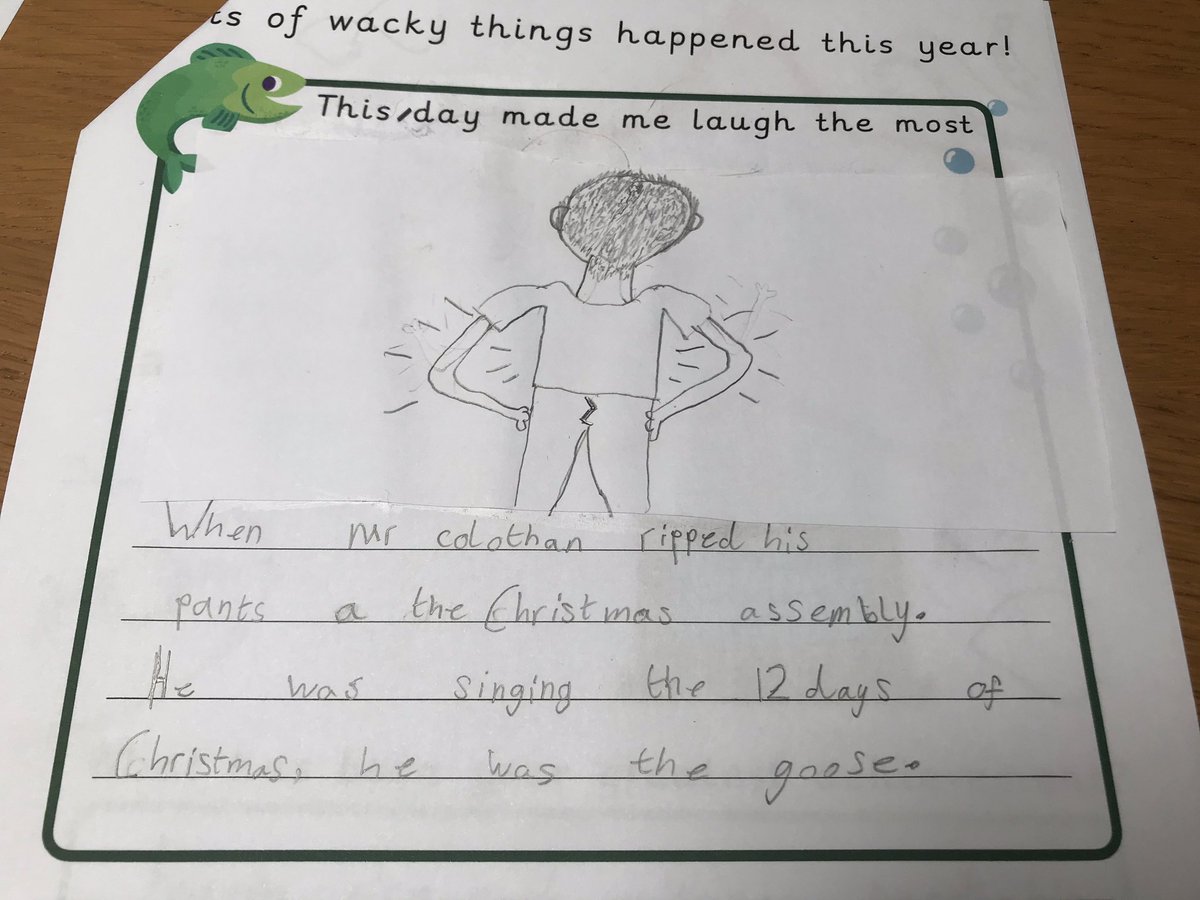 ts of wacky things happened this year!
This day made me laugh the most
When mr colothan ripped his
pants a the Christmas assembly.
He was singing the 12 days of
Christmas, he was the goose.